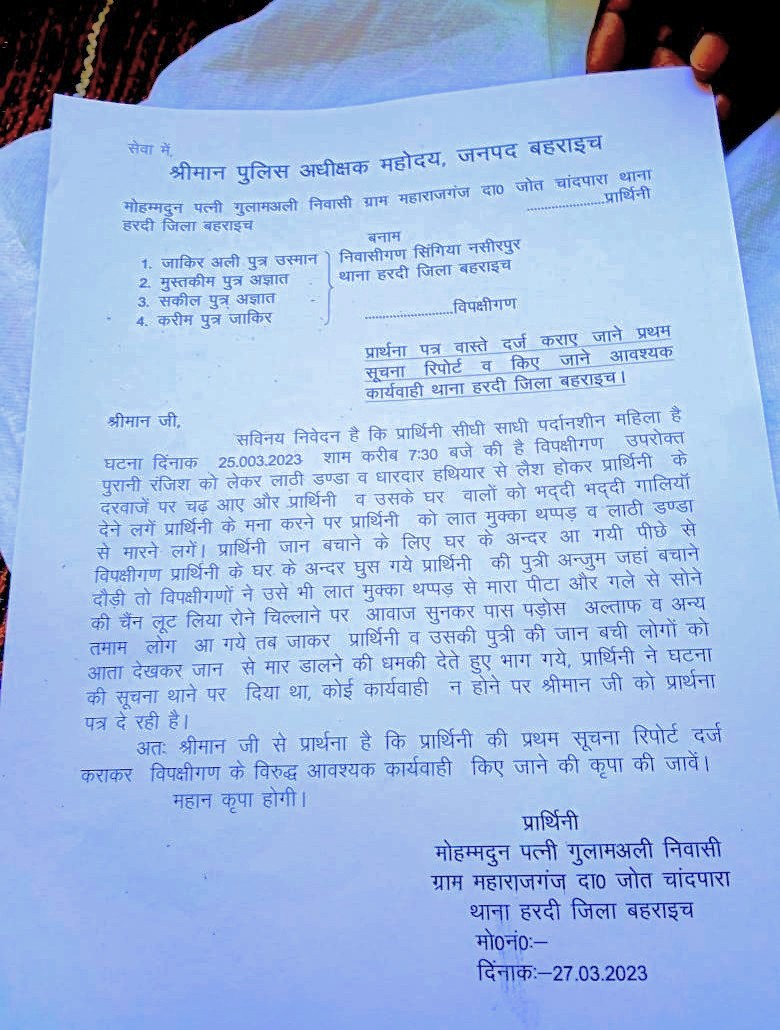 सेवा में,
श्रीमान पुलिस अधीक्षक महोदय, जनपद बहराइच
मोहम्मदुन पत्नी गुलामअली निवासी ग्राम महाराजगंज दा0 जोत चांदपारा थाना
हरदी जिला बहराइच .....................प्रार्थिनी
बनाम
1. जाकिर अली पुत्र उस्मान निवासीगण सिंगिया नसीरपुर
2. मुस्तकीम पुत्र अज्ञात थाना हरदी जिला बहराइच
3. सकील पुत्र अज्ञात
4. करीम पुत्र जाकिर ........................विपक्षीगण
प्रार्थना पत्र वास्ते दर्ज कराए जाने प्रथम
सूचना रिपोर्ट व किए जाने आवश्यक
कार्यवाही थाना हरदी जिला बहराइच।
श्रीमान जी,
सविनय निवेदन है कि प्रार्थिनी सीधी साधी पर्दानशीन महिला है
घटना दिंनाक 25.003.2023 शाम करीब 7:30 बजे की है विपक्षीगण उपरोक्त
पुरानी रंजिश को लेकर लाठी डण्डा व धारदार हथियार से लैश होकर प्रार्थिनी के
दरवाजें पर चढ़ आए और प्रार्थिनी व उसके घर वालों को भद्दी भद्दी गालियाँ
देने लगें प्रार्थिनी के मना करने पर प्रार्थिनी को लात मुक्का थप्पड़ व लाठी डण्डा
से मारने लगें। प्रार्थिनी जान बचाने के लिए घर के अन्दर आ गयी पीछे से
विपक्षीगण प्रार्थिनी के घर के अन्दर घुस गये प्रार्थिनी की पुत्री अन्जुम जहां बचाने
दौड़ी तो विपक्षीगणों ने उसे भी लात मुक्का थप्पड़ से मारा पीटा और गले से सोने
की चैंन लूट लिया रोने चिल्लाने पर आवाज सुनकर पास पड़ोस अल्ताफ व अन्य
तमाम लोग आ गये तब जाकर प्रार्थिनी व उसकी पुत्री की जान बची लोगों को
आता देखकर जान से मार डालने की धमकी देते हुए भाग गये, प्रार्थिनी ने घटना
की सूचना थाने पर दिया था, कोई कार्यवाही न होने पर श्रीमान जी को प्रार्थना
पत्र दे रही है।
अतः श्रीमान जी से प्रार्थना है कि प्रार्थिनी की प्रथम सूचना रिपोर्ट दर्ज
कराकर विपक्षीगण के विरुद्ध आवश्यक कार्यवाही किए जाने की कृपा की जावें।
महान कृपा होगी।
प्रार्थिनी
मोहम्मदुन पत्नी गुलामअली निवासी
ग्राम महाराजगंज दा0 जोत चांदपारा
थाना हरदी जिला बहराइच
मो0नं0:–
दिंनाक:–27.03.2023